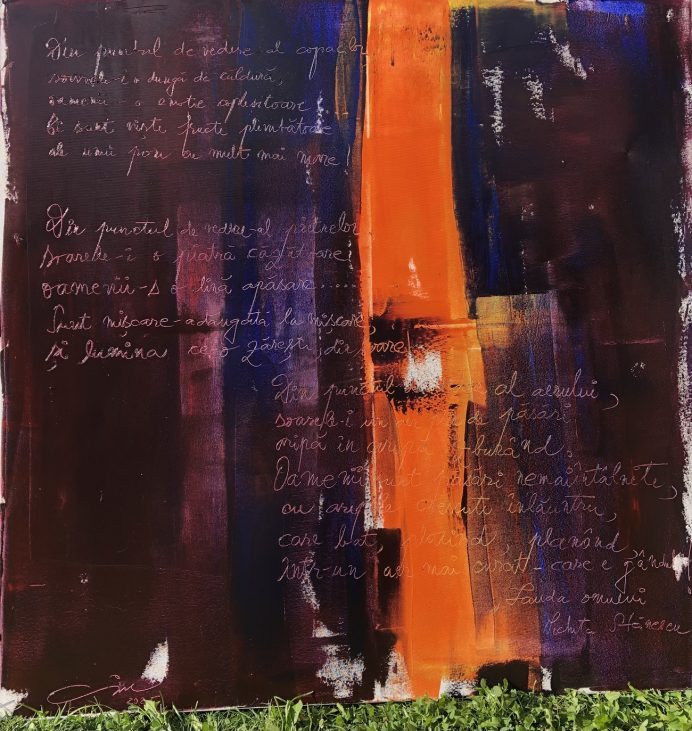 Din punctul de vedere al copacilor,
soarele-i o dungă de căldură,
oamenii - o emoție copleșitoare
Ei sunt niște fructe plimbătoare
ale unui pom cu mult mai mare!
Din punctul de vedere-al pietrelor
soarele-i o piatră căzătoare,
oamenii-s o lină apăsare....
Sunt mișcare-adăugată la mișcare,
și lumina ce-o zărești, din soare!
Din punctul de vedere al aerului,
soarele-i un aer de păsări
aripă în aripă -
Oamenii sunt păsări nemaiîntâlnite,
cu aripile înlăuntru,
care bat, plutind, planând,
într-un aer mai curat - care e gândul
"Lauda omului
Nichita Stănescu